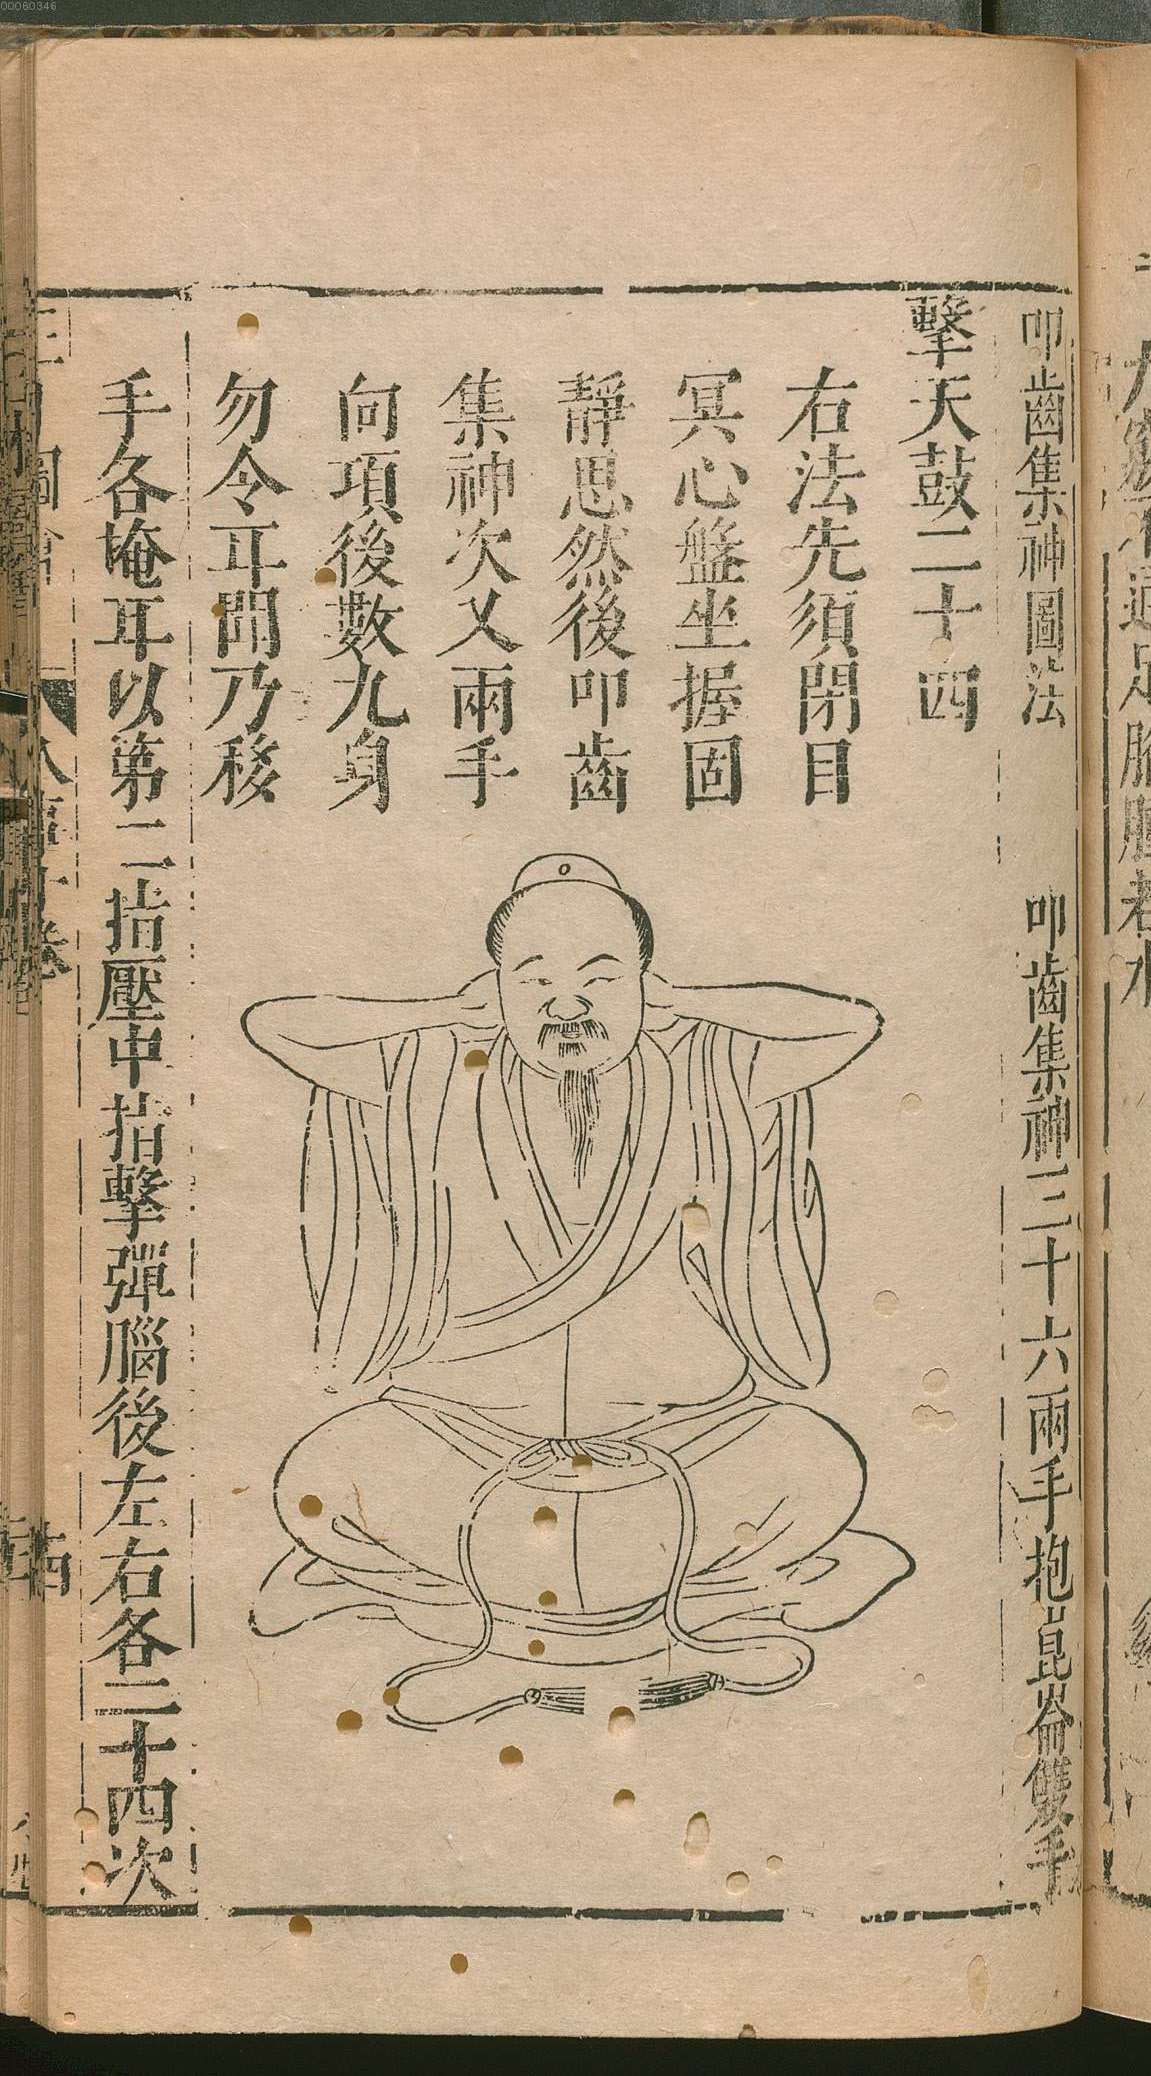 00060346
叩齒集神圖法　叩齒集神三十六兩手抱崑崙雙手
擊天鼓二十四
右法先須閉目
冥心盤坐握固
靜思然後叩齒
集神次叉兩手
向項後數九身
勿令耳聞乃移
手各掩耳以第二指壓中指擊彈腦後左右各二十四次